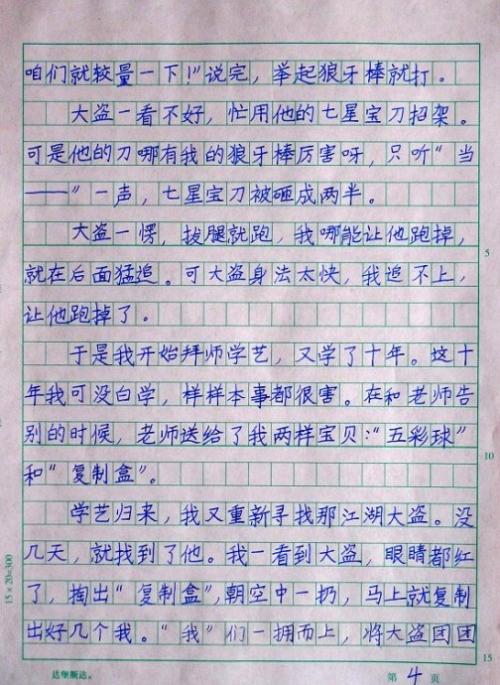 咱们就较量一下!"说完，举起狼牙棒就打.
大盗一看不好，忙用他的七星宝刀招架。
可是他的刀哪有我的狼牙棒厉害呀，只听"当
——"一声，七星宝刀被砸成两半。
大盗一愣，拔腿就跑，我哪能让他跑掉，
就在后面猛追。可大盗身法太快，我追不上，
5
让他跑掉了.
于是我开始拜师学艺，又学了十年。这十
年我可没白学，样样本事都很害。在和老师告
别的时候，老师送给了我两样宝贝:"五彩球"
10
和"复制盒"。
学艺归来，我又重新寻找那江湖大盗。没
几天，就找到了他。我一看到大盗，眼睛都红
了，掏出"复制盒"，朝空中一扔，马上就复制
出好几个我。"我"们一拥而上，将大盗团团
15
15×20=300
达傣顺达。
第 4 页